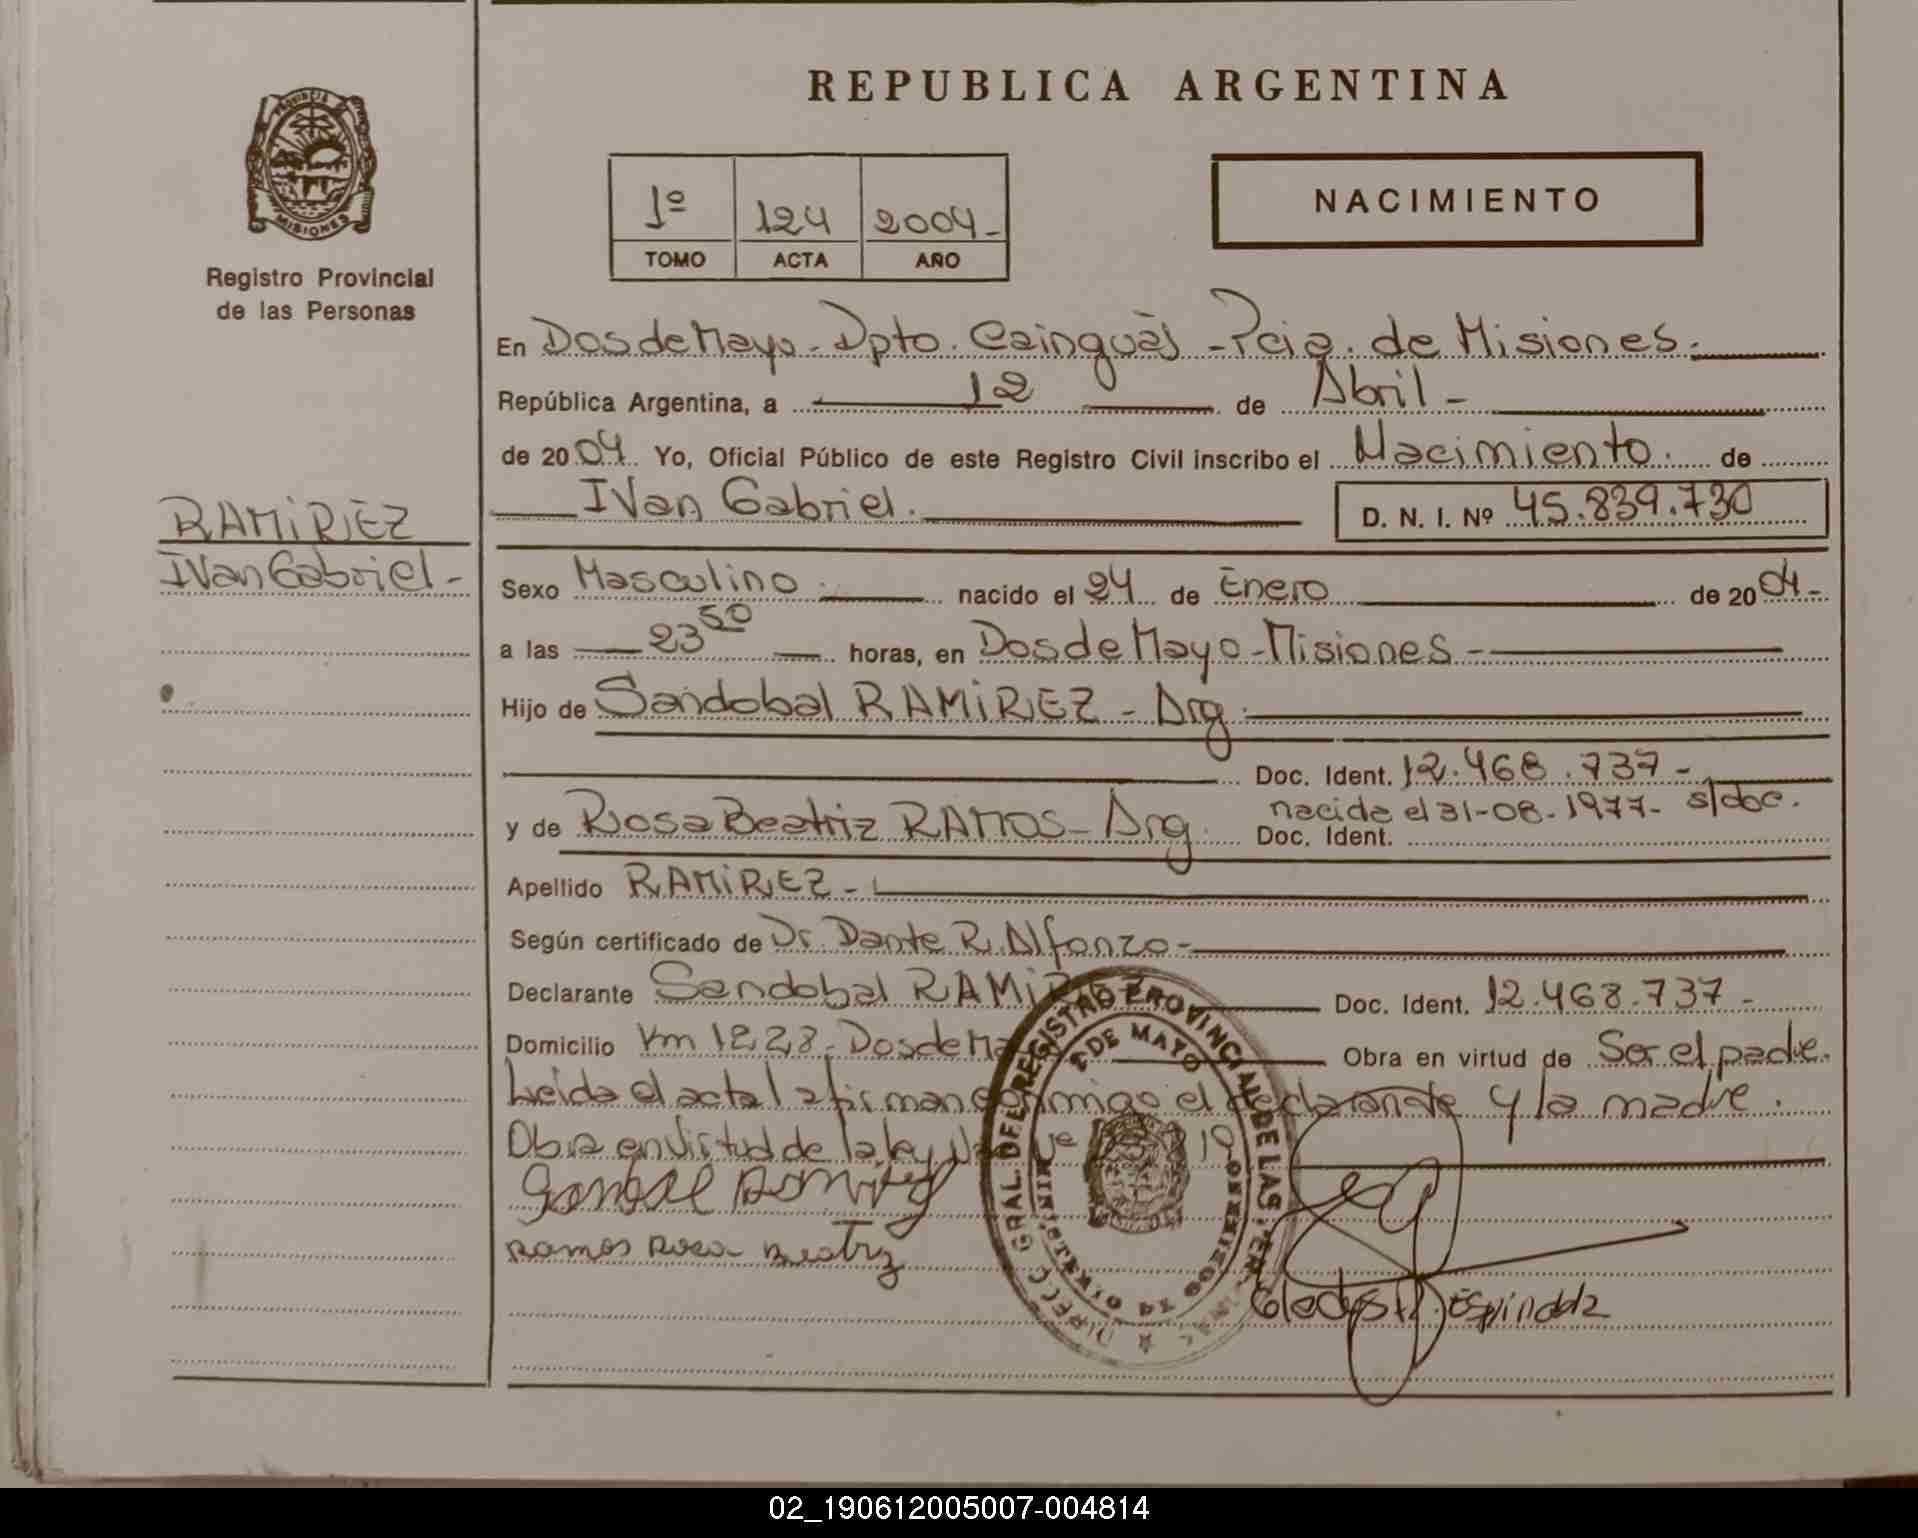 PROVINCIA
MISIONES
Registro Provincial
de las Personas
RAMIREZ
Ivan Gabriel -
REPUBLICA ARGENTINA
1º 124 2004-
TOMO ACTA AÑO
NACIMIENTO
En Dos de Mayo - Dpto. Cainguàs - Pcia. de Misiones.
República Argentina, a 12 de Abril -
de 2004. Yo, Oficial Público de este Registro Civil inscribo el Nacimiento. de
Ivan Gabriel. D. N. I. Nº 45.839.730
Sexo Masculino. nacido el 24 de Enero de 2004-
a las 23 50 horas, en Dos de Mayo - Misiones -
Hijo de Sandobal RAMIREZ - Arg.
Doc. Ident. 12.468.737 -
nacida el 31-08-1977- s/doc.
y de Rosa Beatriz RAMOS - Arg. Doc. Ident.
Apellido RAMIREZ -
Según certificado de Dr. Dante R. Alfonzo -
Declarante Sandobal RAMIREZ Doc. Ident. 12.468.737 -
Domicilio Km 1228 - Dos de Mayo Obra en virtud de Ser el padre.
Leida el acta la firman conmigo el declarante y la madre.
Obra en virtud de la ley
Ramos Rosa Beatriz
DIRECC. GRAL. DEL REGISTRO PROVINCIAL DE LAS PER
2 DE MAYO
Gladys Espindola
02_190612005007-004814